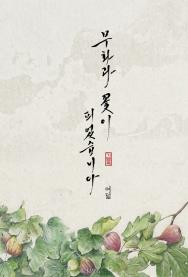 무화과 꽃이
피었습니다
여덟